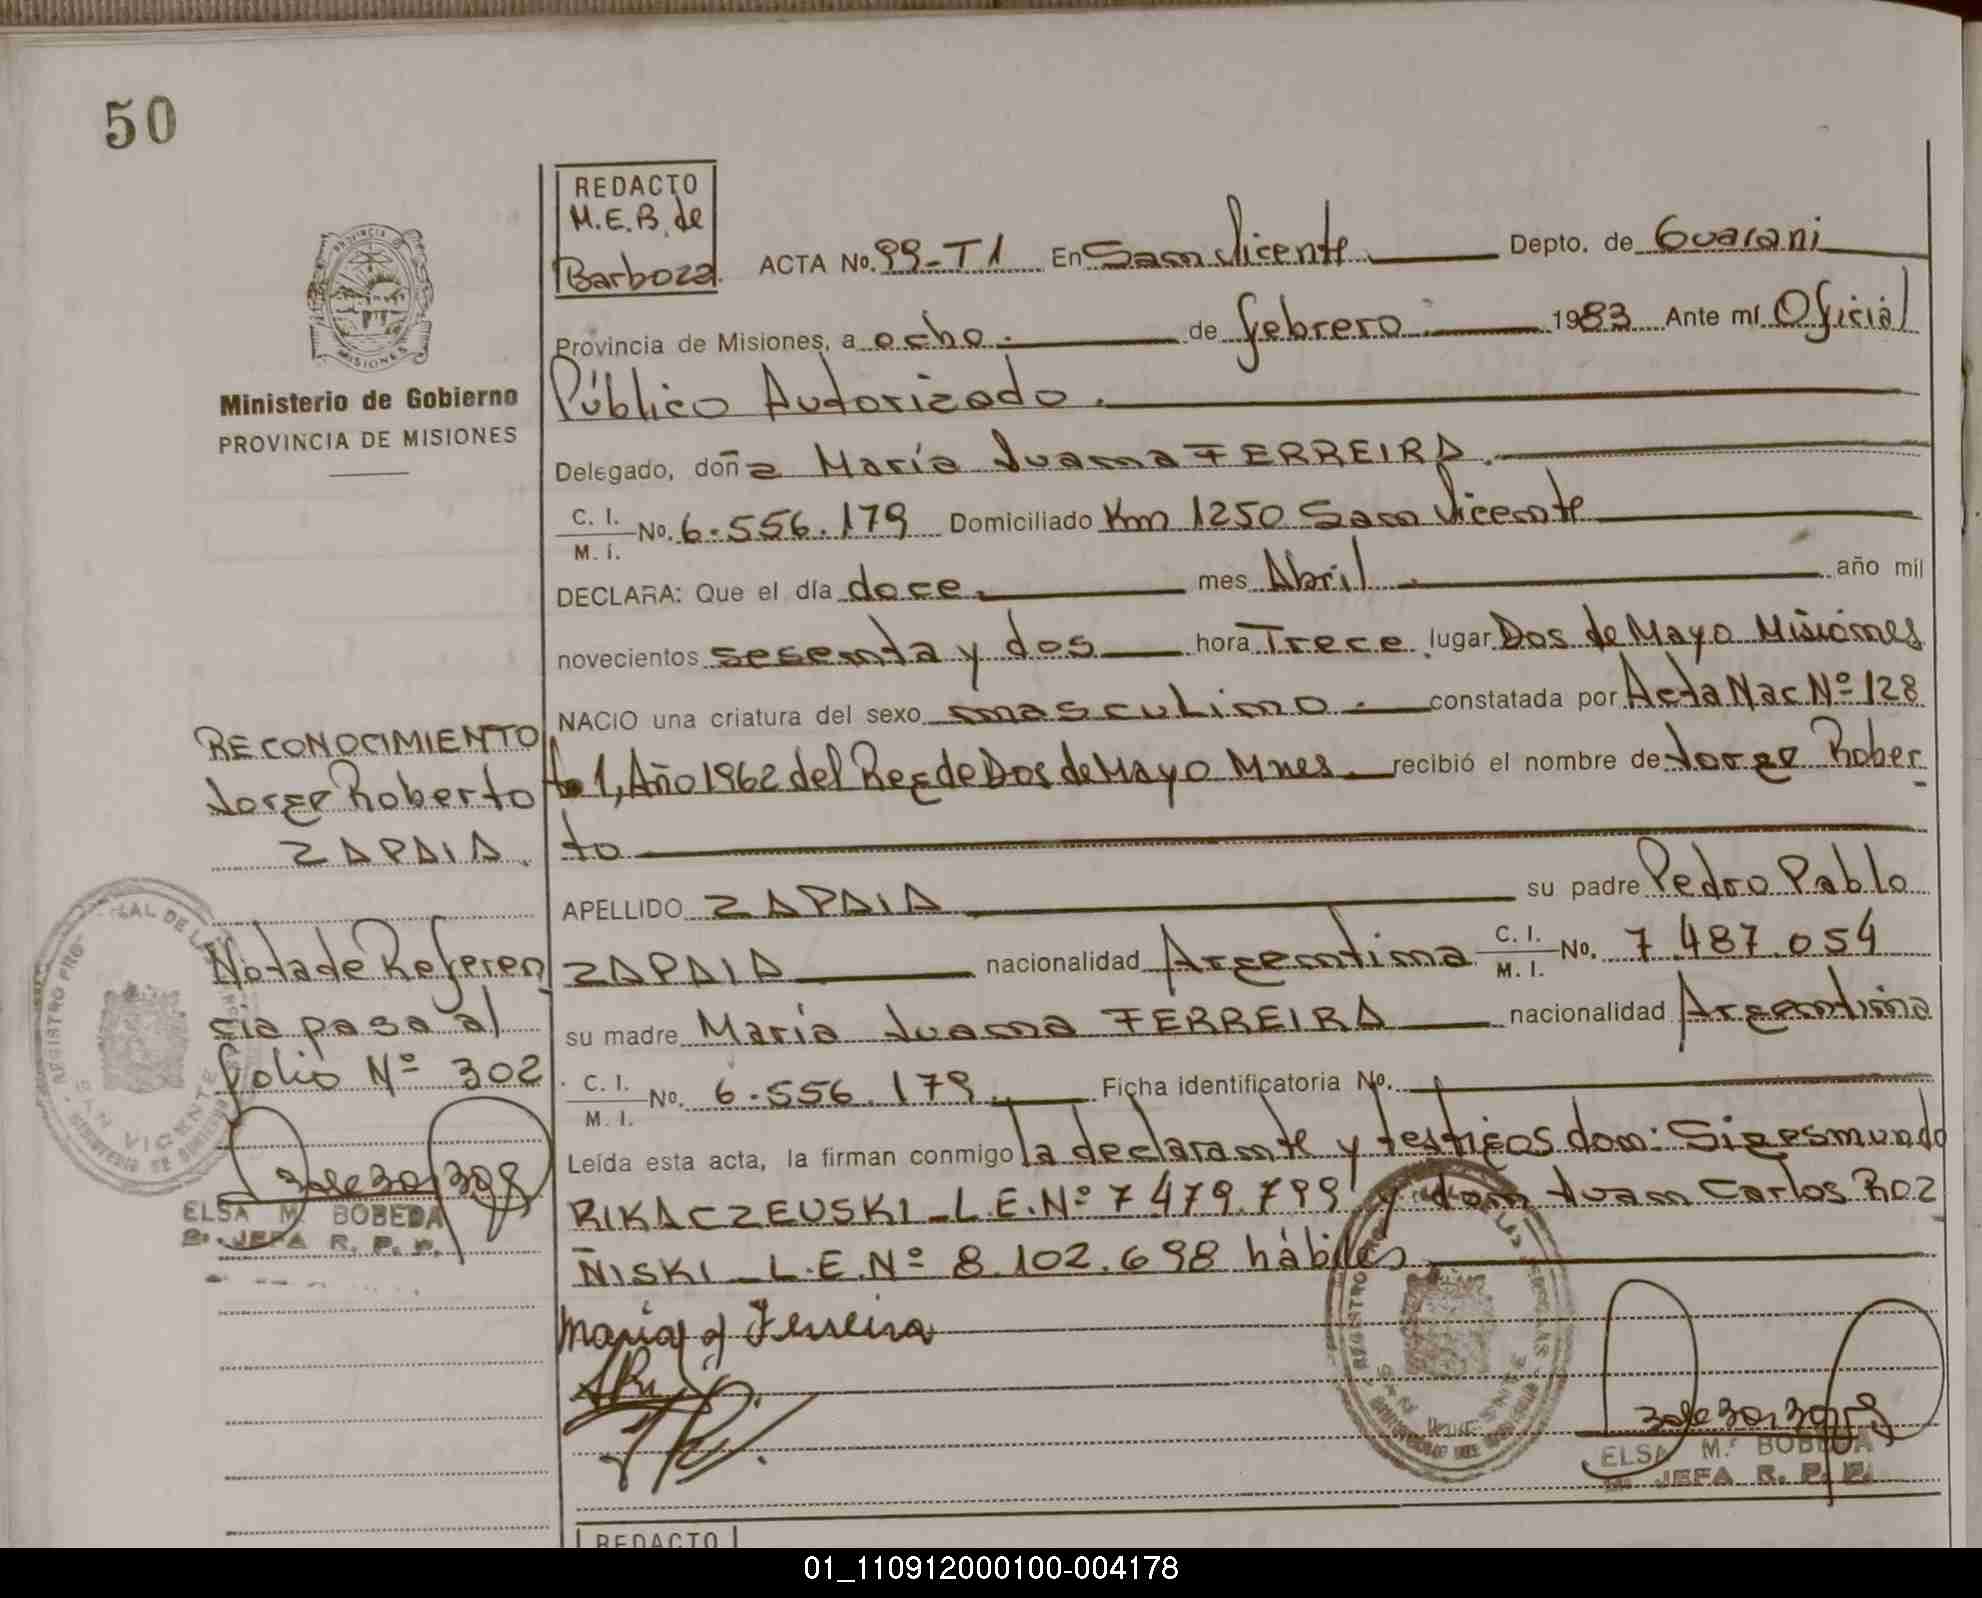 50
REDACTO
M.E.B. de
Barboza
ACTA No. 99-T1 En San Vicente Depto. de Guarani
Provincia de Misiones, a ocho. de febrero 1983 Ante mí Oficial
Público Autorizado.
Delegado, doña María Juana FERREIRA.
C. I.
M. I.
No. 6.556.179 Domiciliado Km 1250 San Vicente
DECLARA: Que el día doce. mes Abril. año mil
novecientos sesenta y dos hora Trece lugar Dos de Mayo Misiones
NACIO una criatura del sexo masculino. constatada por Acta Nac Nº 128
1, Año 1962 del Reg de Dos de Mayo Mnes. recibió el nombre de Jorge Rober
to
APELLIDO ZAPAIA su padre Pedro Pablo
ZAPAIA nacionalidad Argentina C. I. M. I. No. 7.487.054
su madre María Juana FERREIRA nacionalidad Argentina
C. I.
M. I.
No. 6.556.179 Ficha identificatoria No.
Leída esta acta, la firman conmigo la declarante y testigos don: Sigesmundo
RIKACZEUSKI_L.E.Nº 7 479.799 y don Juan Carlos ROZ
ÑISKI_L.E.Nº 8.102.698 hábiles
Maria J Ferreira
ELSA M. BOBEDA
JEFA R. P. P.
Ministerio de Gobierno
PROVINCIA DE MISIONES
RECONOCIMIENTO
Jorge Roberto
ZAPAIA.
Nota de Referen
cia pasa al
folio Nº 302
ELSA M. BOBEDA
JEFA R. P. P.
SAN VICENTE
REDACTO
01_110912000100-004178